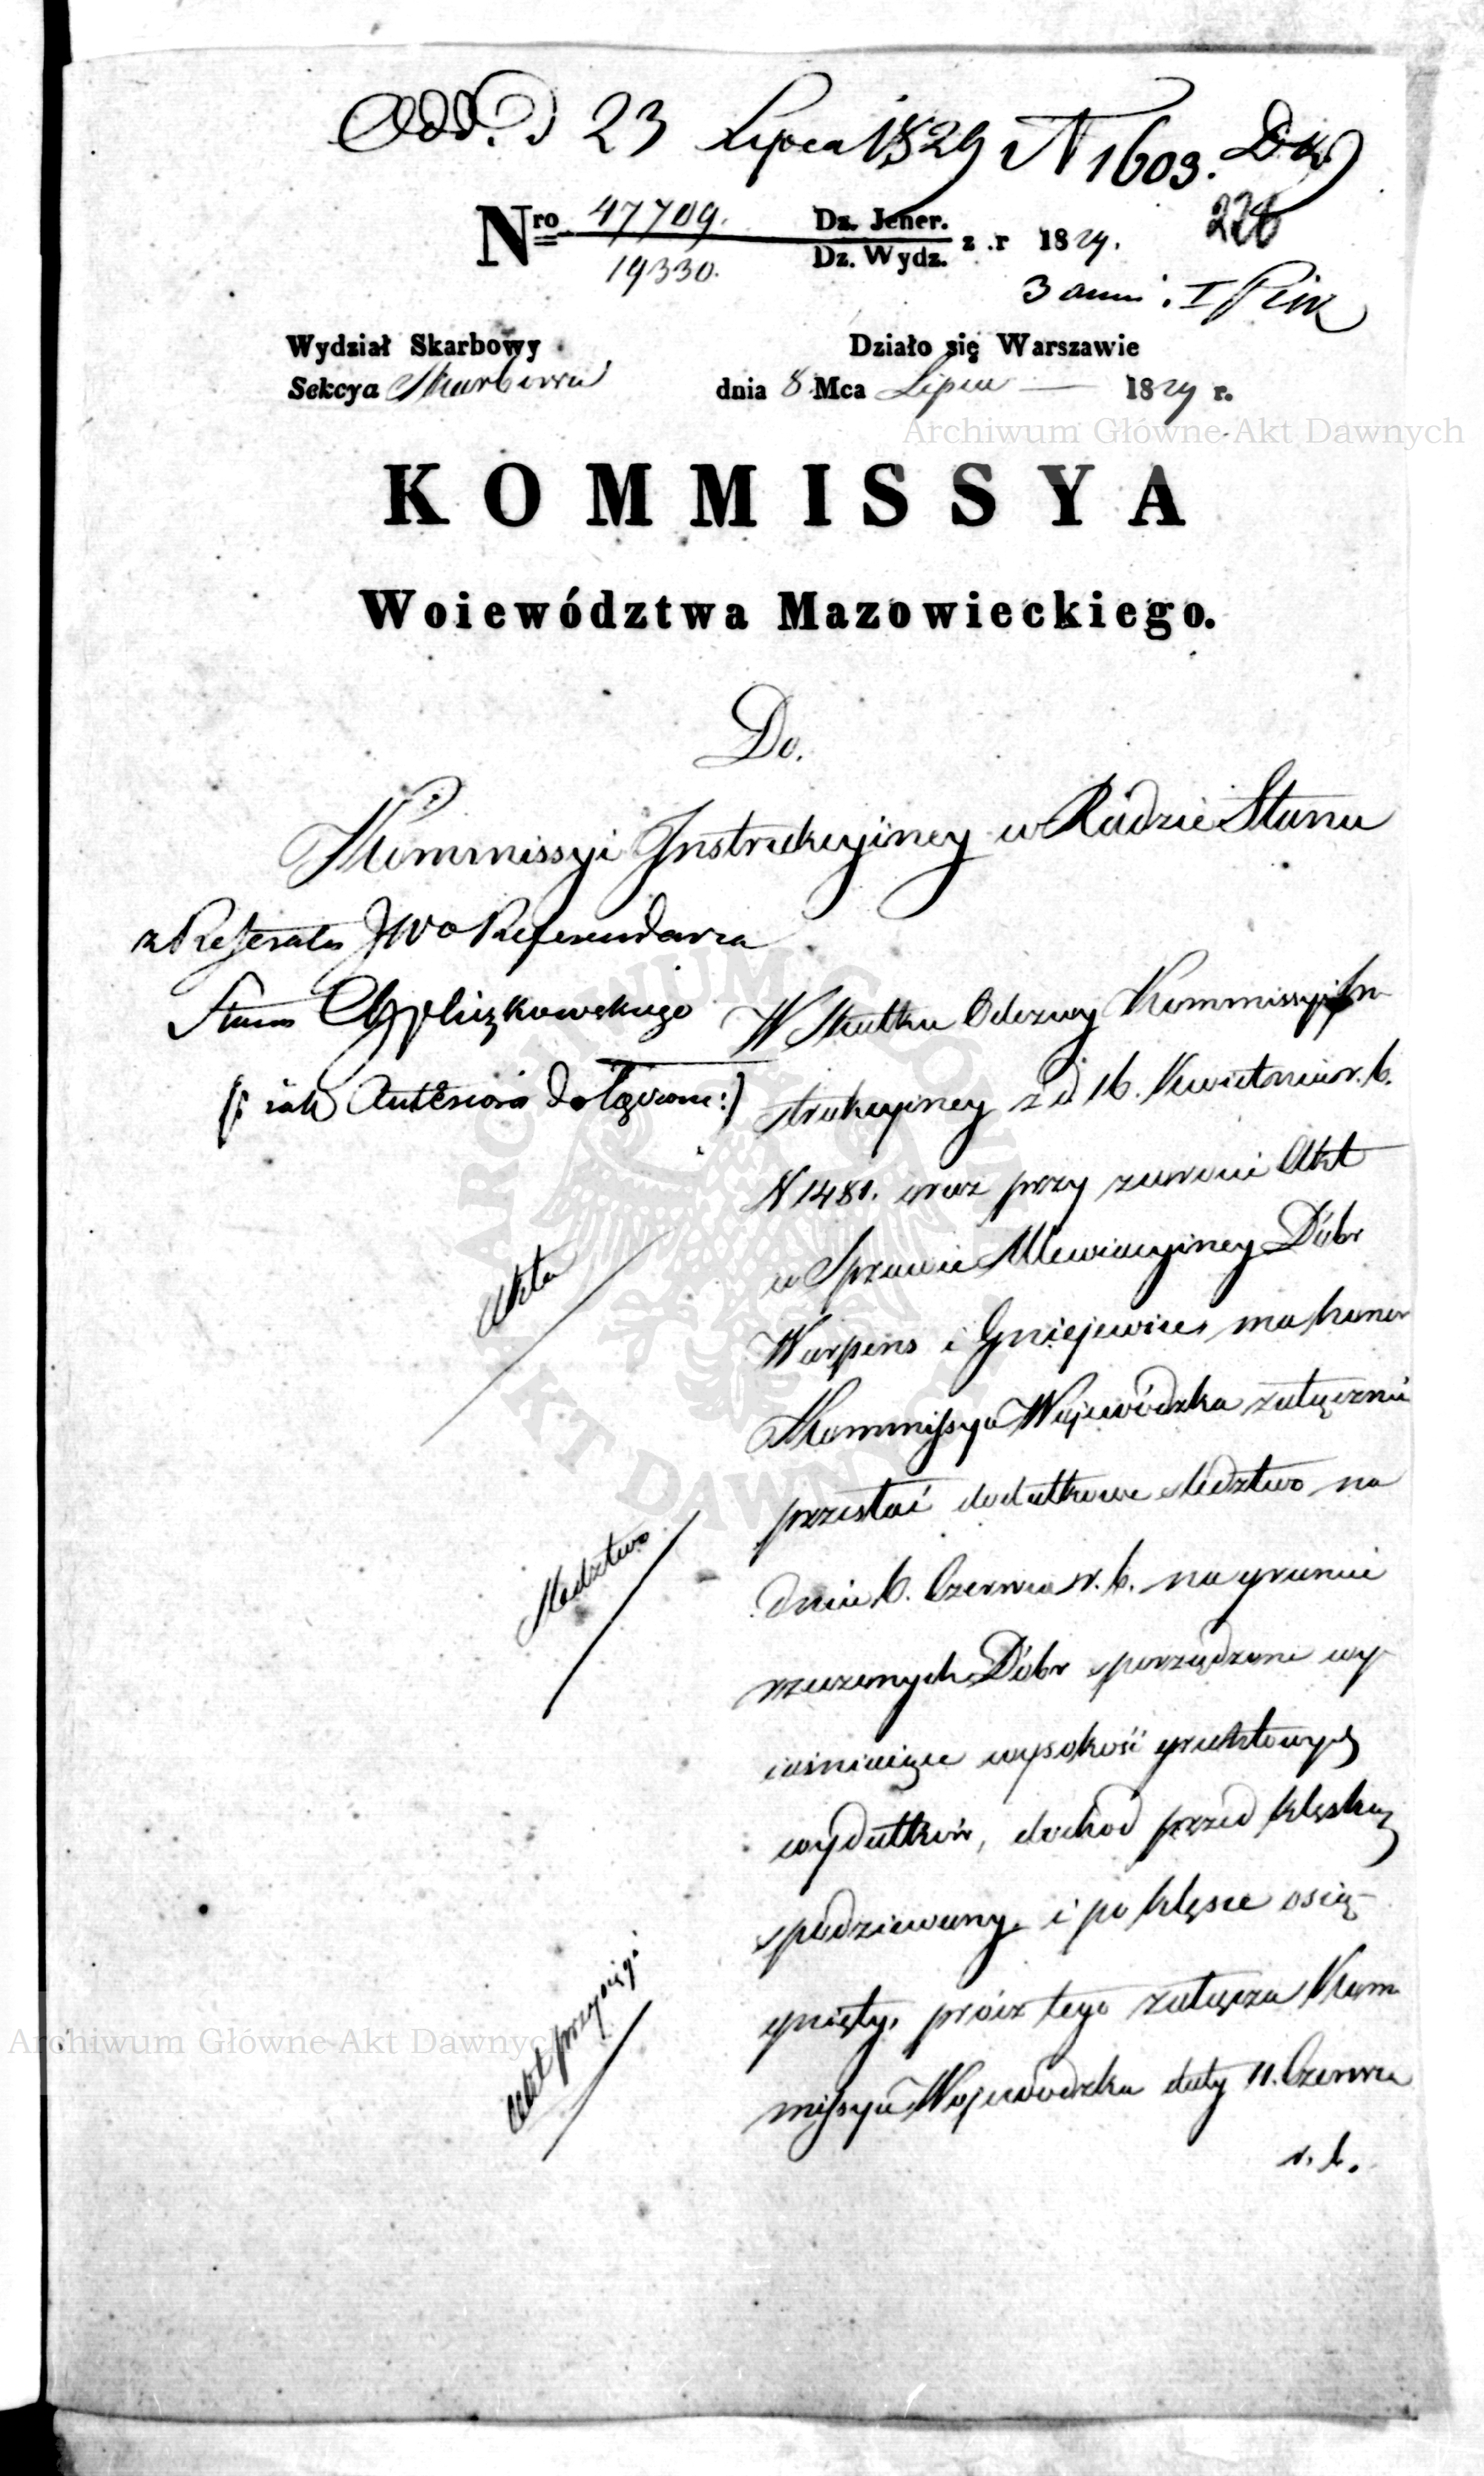 Odd. d 23 Lipca 1829 N 1603. Dk
Nro 47709. Dz. Jener. z r 1829.
19330. Dz. Wydz.
228
3 ann:
Wydział Skarbowy
Działo się w Warszawie
Sekcya Skarbowa
dnia 8 Mca Lipca — 1829 r.
Archiwum Główne Akt Dawnych
KOMMISSYA
Woiewództwa Mazowieckiego.
Do.
Kommissyi Instrukcyiney w Radzie Stanu
z Referatu JWo Referendarza
Stanu
(: iak Anteriora dołączone :)
W Skutku Odezwy Kommissyi In-
strukcyiney z d 16. Kwietnia r. b.
N 1481. oraz przy zwrocie Akt
w Sprawie Allewiacyiney Dóbr
i Gniejewice, ma honor
Kommissya Wojewódzka załącznie
przesłać dodatkowe śledztwo na
dniu 6. Czerwca r. b. na gruncie
rzeczonych Dóbr sporządzone wy-
iaśniaiące wysokość gruntowych
wydatków, dochod przed klęską
spodziewany, i po klęsce osią-
gnięty, prócz tego załącza Kom
missya Wojewodzka daty 11. Czerwca
r. b.
Akta
Śledztwo
Akt przysięgi
Archiwum Główne Akt Dawnych
ARCHIWUM GŁÓWNE AKT DAWNYCH